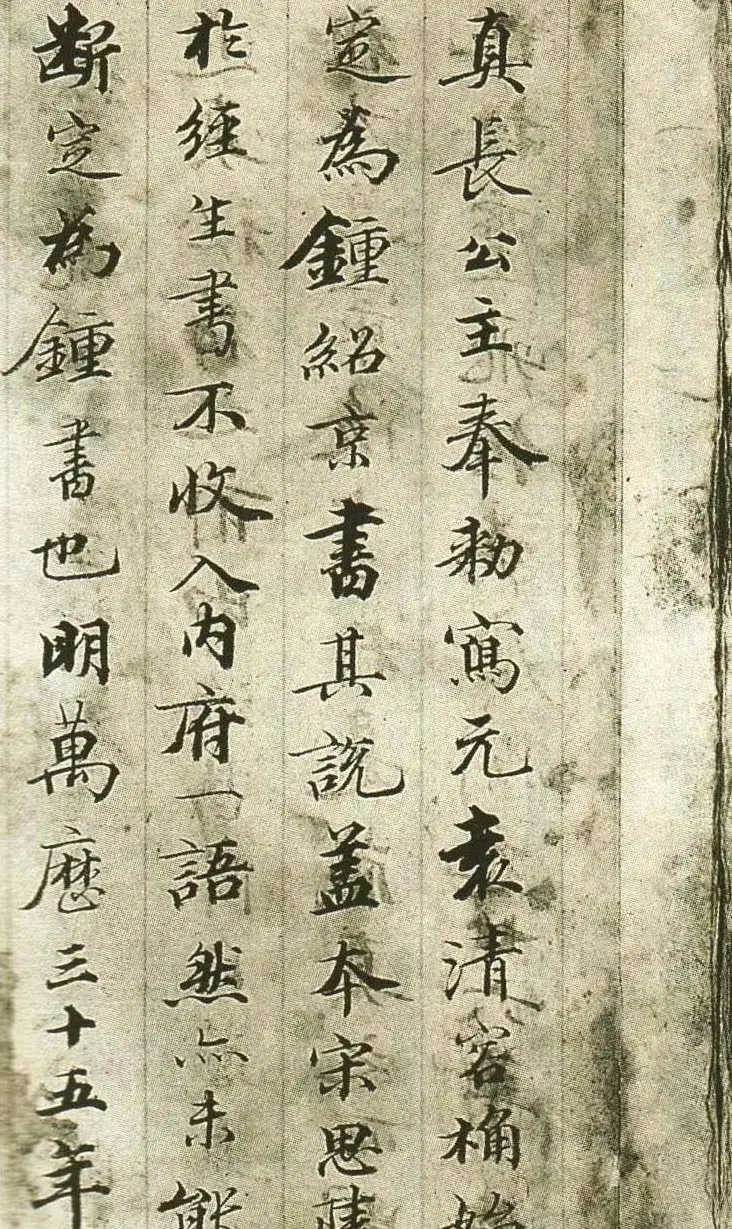 真長公主奉勑寫元袁清容桷始
定為鍾紹京書其說蓋本宋思陵
於經生書不收入內府一語然亦未能
斷定為鍾書也明萬歷三十五年